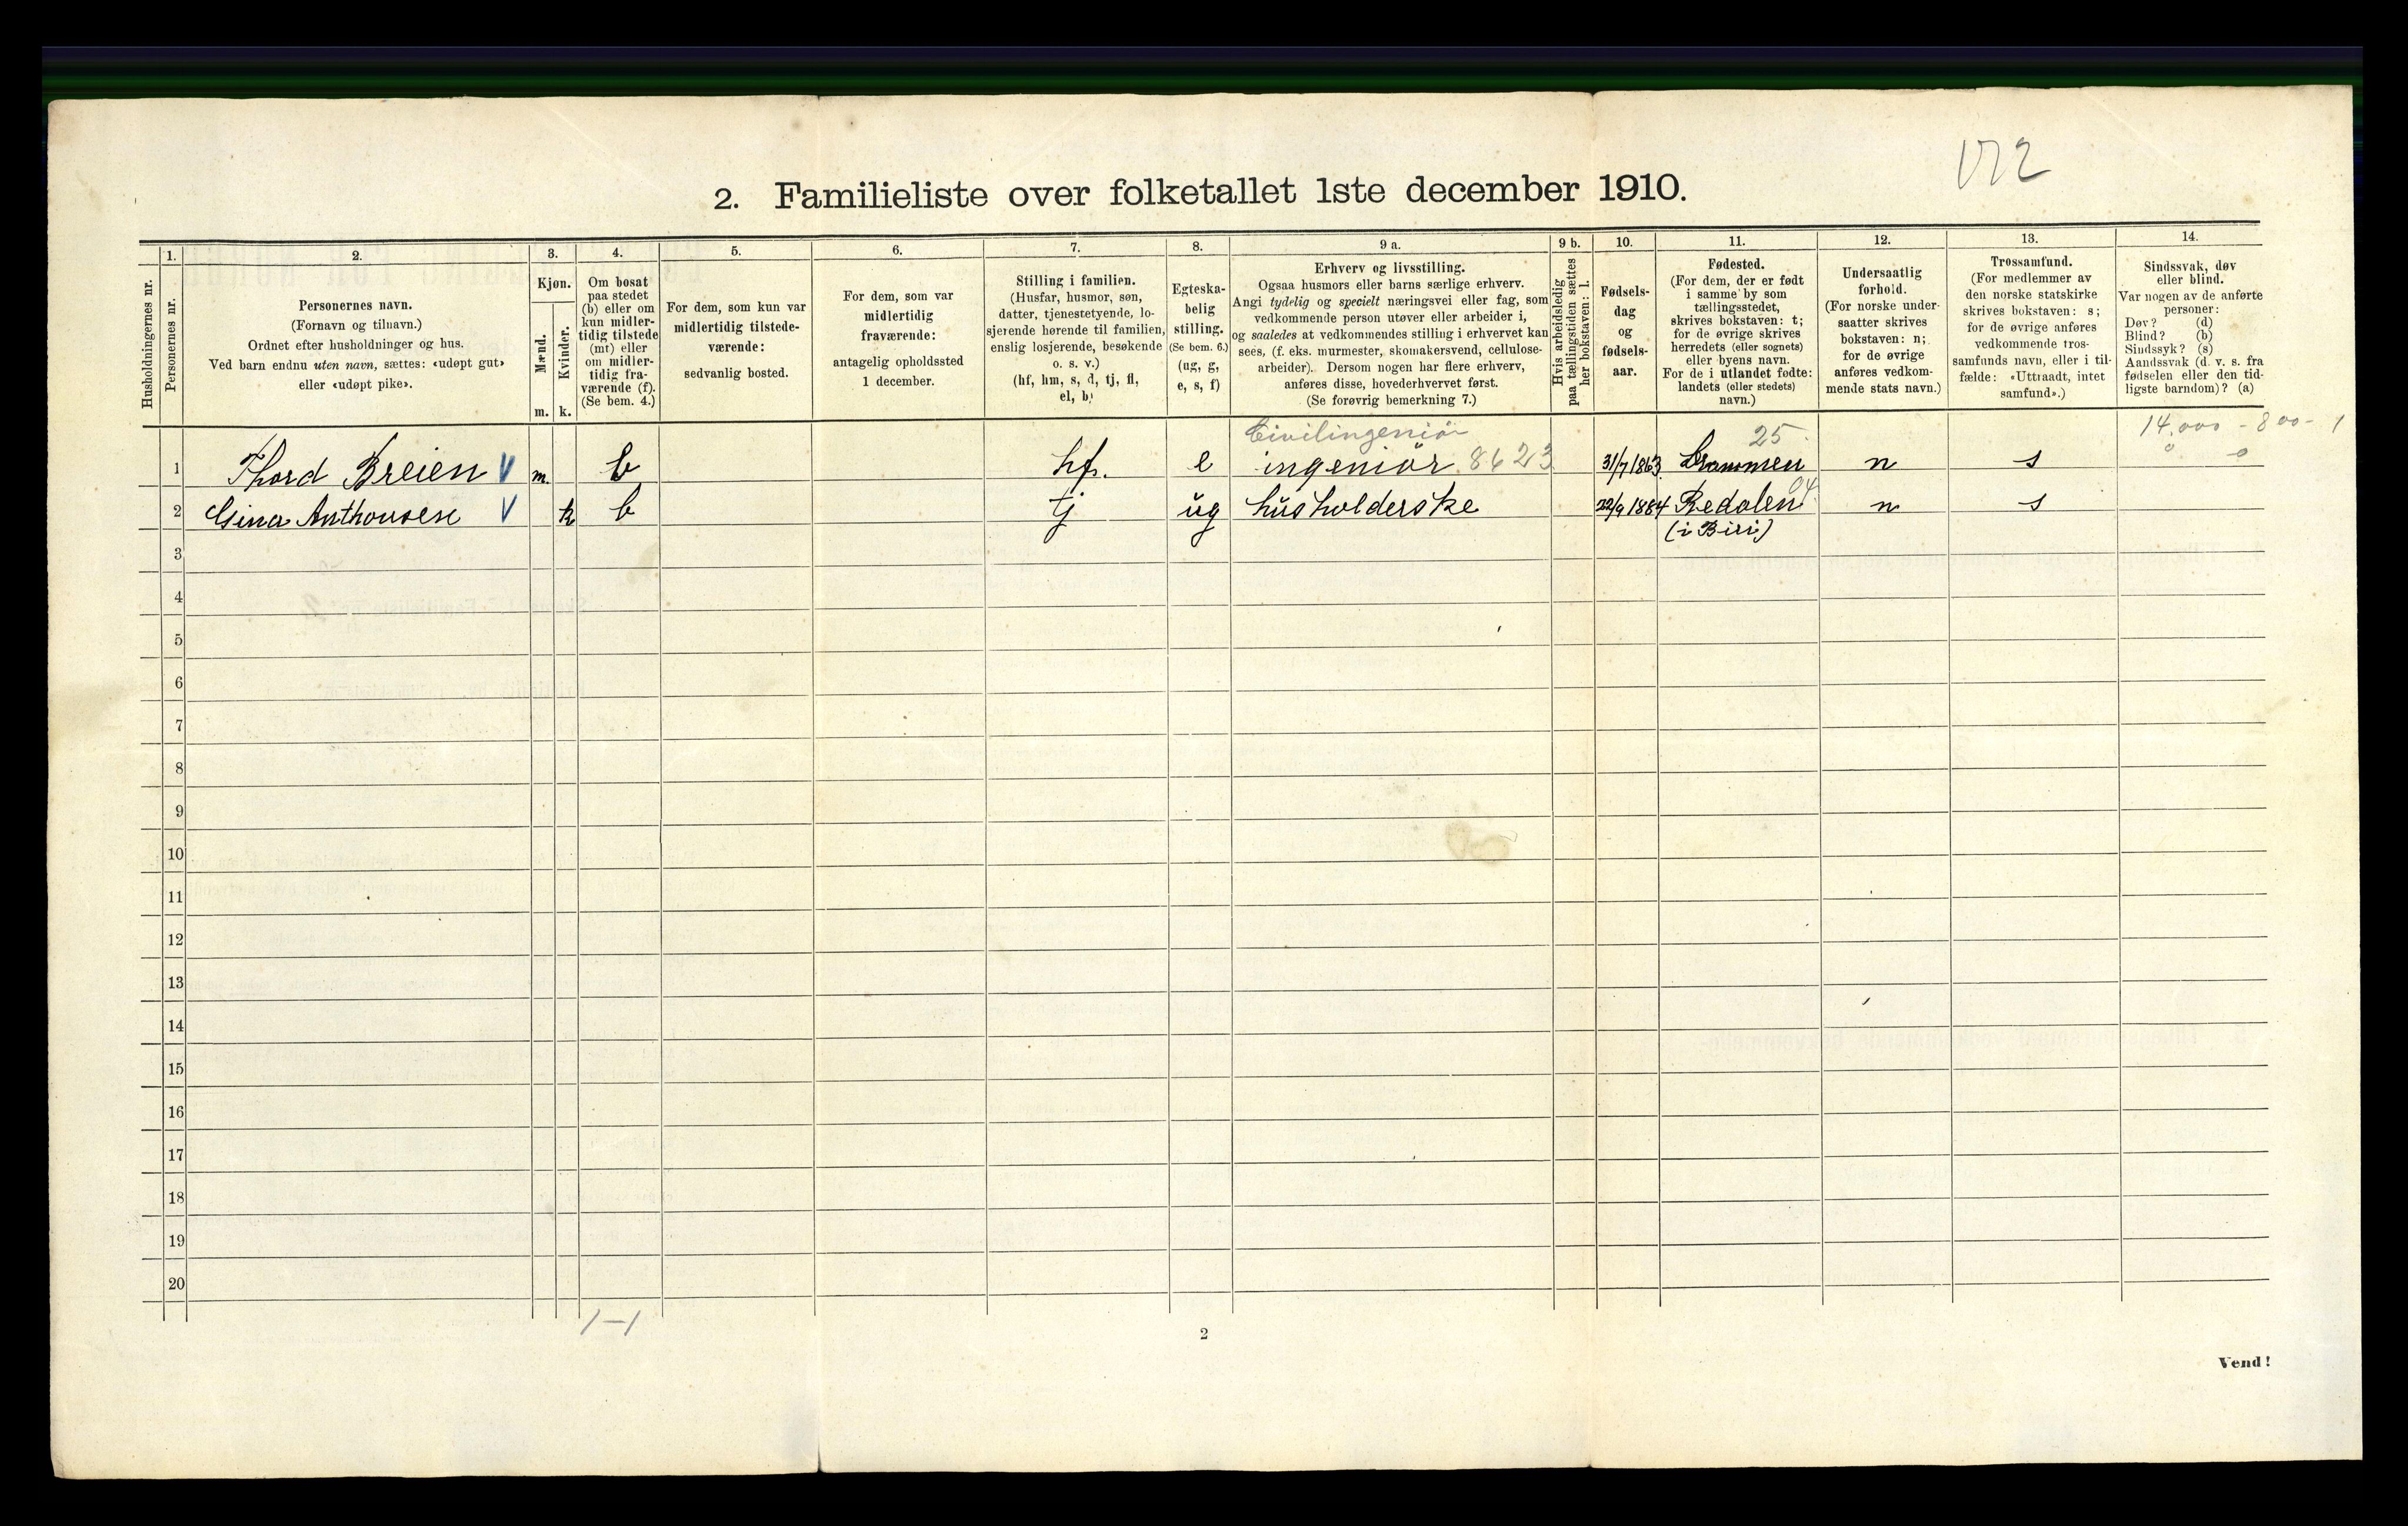 172
2. Familieliste over folketallet 1ste december 1910.
Husholdningernes nr.
1.
Personernes nr.
2.
Personernes navn.
(Fornavn og tilnavn.)
Ordnet efter husholdninger og hus.
Ved barn endnu uten navn, sættes: «udøpt gut»
eller «udøpt pike».
3.
Kjøn.
Mænd.
m.
Kvinder.
k.
4.
Om bosat
paa stedet
(b) eller om
kun midler-
tidig tilstede
(mt) eller
om midler-
tidig fra-
værende (f).
(Se bem. 4.)
5.
For dem, som kun var
midlertidig tilstede-
værende:
sedvanlig bosted.
6.
For dem, som var
midlertidig
fraværende:
antagelig opholdssted
1 december.
7.
Stilling i familien.
(Husfar, husmor, søn,
datter, tjenestetyende, lo-
sjerende hørende til familien,
enslig losjerende, besøkende
o. s. v.)
(hf, hm, s, d, tj, fl,
el, b)
8.
Egteska-
belig
stilling.
(Se bem. 6.)
(ug, g,
e, s, f)
9 a.
Erhverv og livsstilling.
Ogsaa husmors eller barns særlige erhverv.
Angi tydelig og specielt næringsvei eller fag, som
vedkommende person utøver eller arbeider i,
og saaledes at vedkommendes stilling i erhvervet kan
sees, (f. eks. murmester, skomakersvend, cellulose-
arbeider). Dersom nogen har flere erhverv,
anføres disse, hovederhvervet først.
(Se forøvrig bemerkning 7.)
9 b.
Hvis arbeidsledig
paa tællingstiden sættes
her bokstaven: l.
10.
Fødsels-
dag
og
fødsels-
aar.
11.
Fødested.
(For dem, der er født
i samme by som
tællingsstedet,
skrives bokstaven: t;
for de øvrige skrives
herredets (eller sognets)
eller byens navn.
For de i utlandet fødte:
landets (eller stedets)
navn.)
12.
Undersaatlig
forhold.
(For norske under-
saatter skrives
bokstaven: n;
for de øvrige
anføres vedkom-
mende stats navn.)
13.
Trossamfund.
(For medlemmer av
den norske statskirke
skrives bokstaven: s;
for de øvrige anføres
vedkommende tros-
samfunds navn, eller i til-
fælde: «Uttraadt, intet
samfund».)
14.
Sindssvak, døv
eller blind.
Var nogen av de anførte
personer:
Døv? (d)
Blind? (b)
Sindssyk? (s)
Aandssvak (d. v. s. fra
fødselen eller den tid-
ligste barndom)? (a)
Civilingeniør 25 14.000 - 800 - 1
1 Thord Breien V m. b hf. e ingeniör 8623 31/7 1863 Drammen n s 0 0
2 Gina Anthonsen V k b tj ug husholderske 22/9 1884 Redalen 04 n s
(i Biri)
3
4
5
6
7
8
9
10
11
12
13
14
15
16
17
18
19
20
1-1
2
Vend!